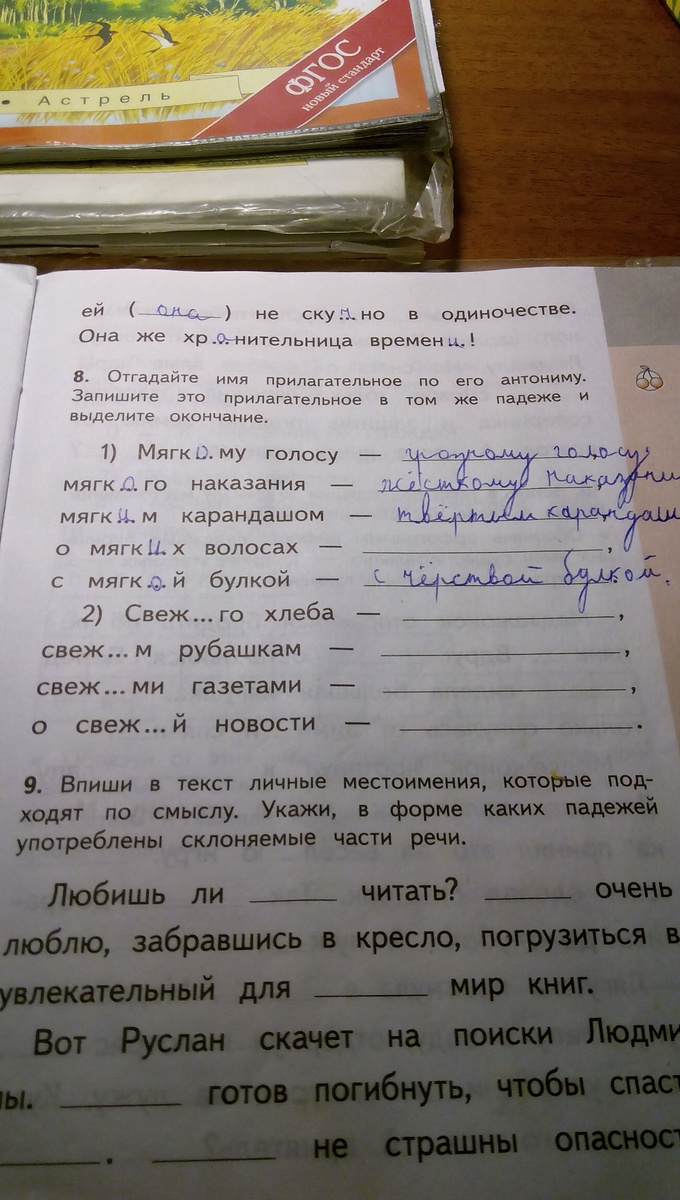 • Астрель
ФГОС
новый стандарт
ей (она) не ску.ч.но в одиночестве.
Она же хр.а.нительница времени.!
8. Отгадайте имя прилагательное по его антониму.
Запишите это прилагательное в том же падеже и
выделите окончание.
1) Мягко.му голосу — грозному голосу,
мягк.о.го наказания — жёсткому наказани
мягки.м карандашом — твёрдым карандаш
о мягки.х волосах — ,
с мягк.о.й булкой — с чёрствой булкой.
2) Свеж...го хлеба — ,
свеж...м рубашкам — ,
свеж...ми газетами — ,
о свеж...й новости — .
9. Впиши в текст личные местоимения, которые под-
ходят по смыслу. Укажи, в форме каких падежей
употреблены склоняемые части речи.
Любишь ли ______ читать? ______ очень
люблю, забравшись в кресло, погрузиться в
увлекательный для ______ мир книг.
Вот Руслан скачет на поиски Людми
лы. ______ готов погибнуть, чтобы спаст
______. ______ не страшны опасност